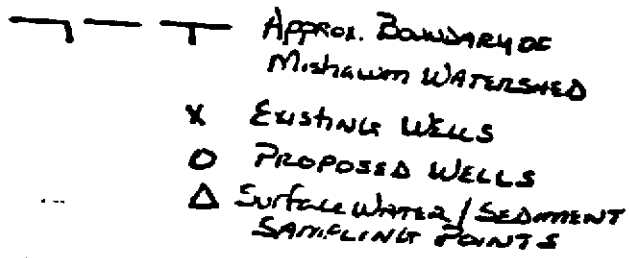 Approx. Boundary of
Mishawum Watershed
X Existing Wells
O Proposed Wells
Δ Surface Water / Sediment
Sampling Points